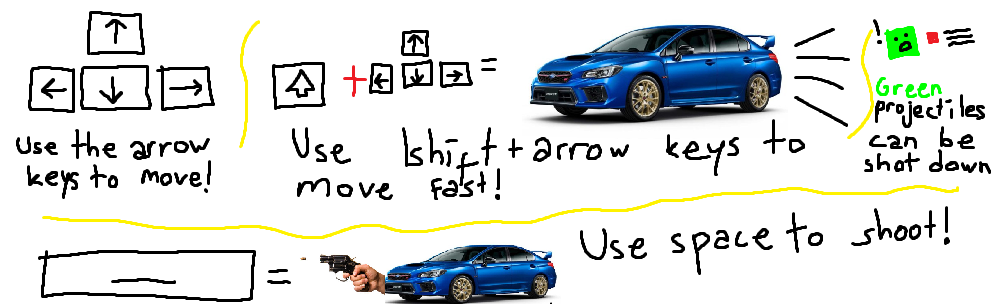 Use the arrow
keys to move!
Use lshift + arrow keys to
move fast!
!
Green
projectiles
can be
shot down
Use space to shoot!